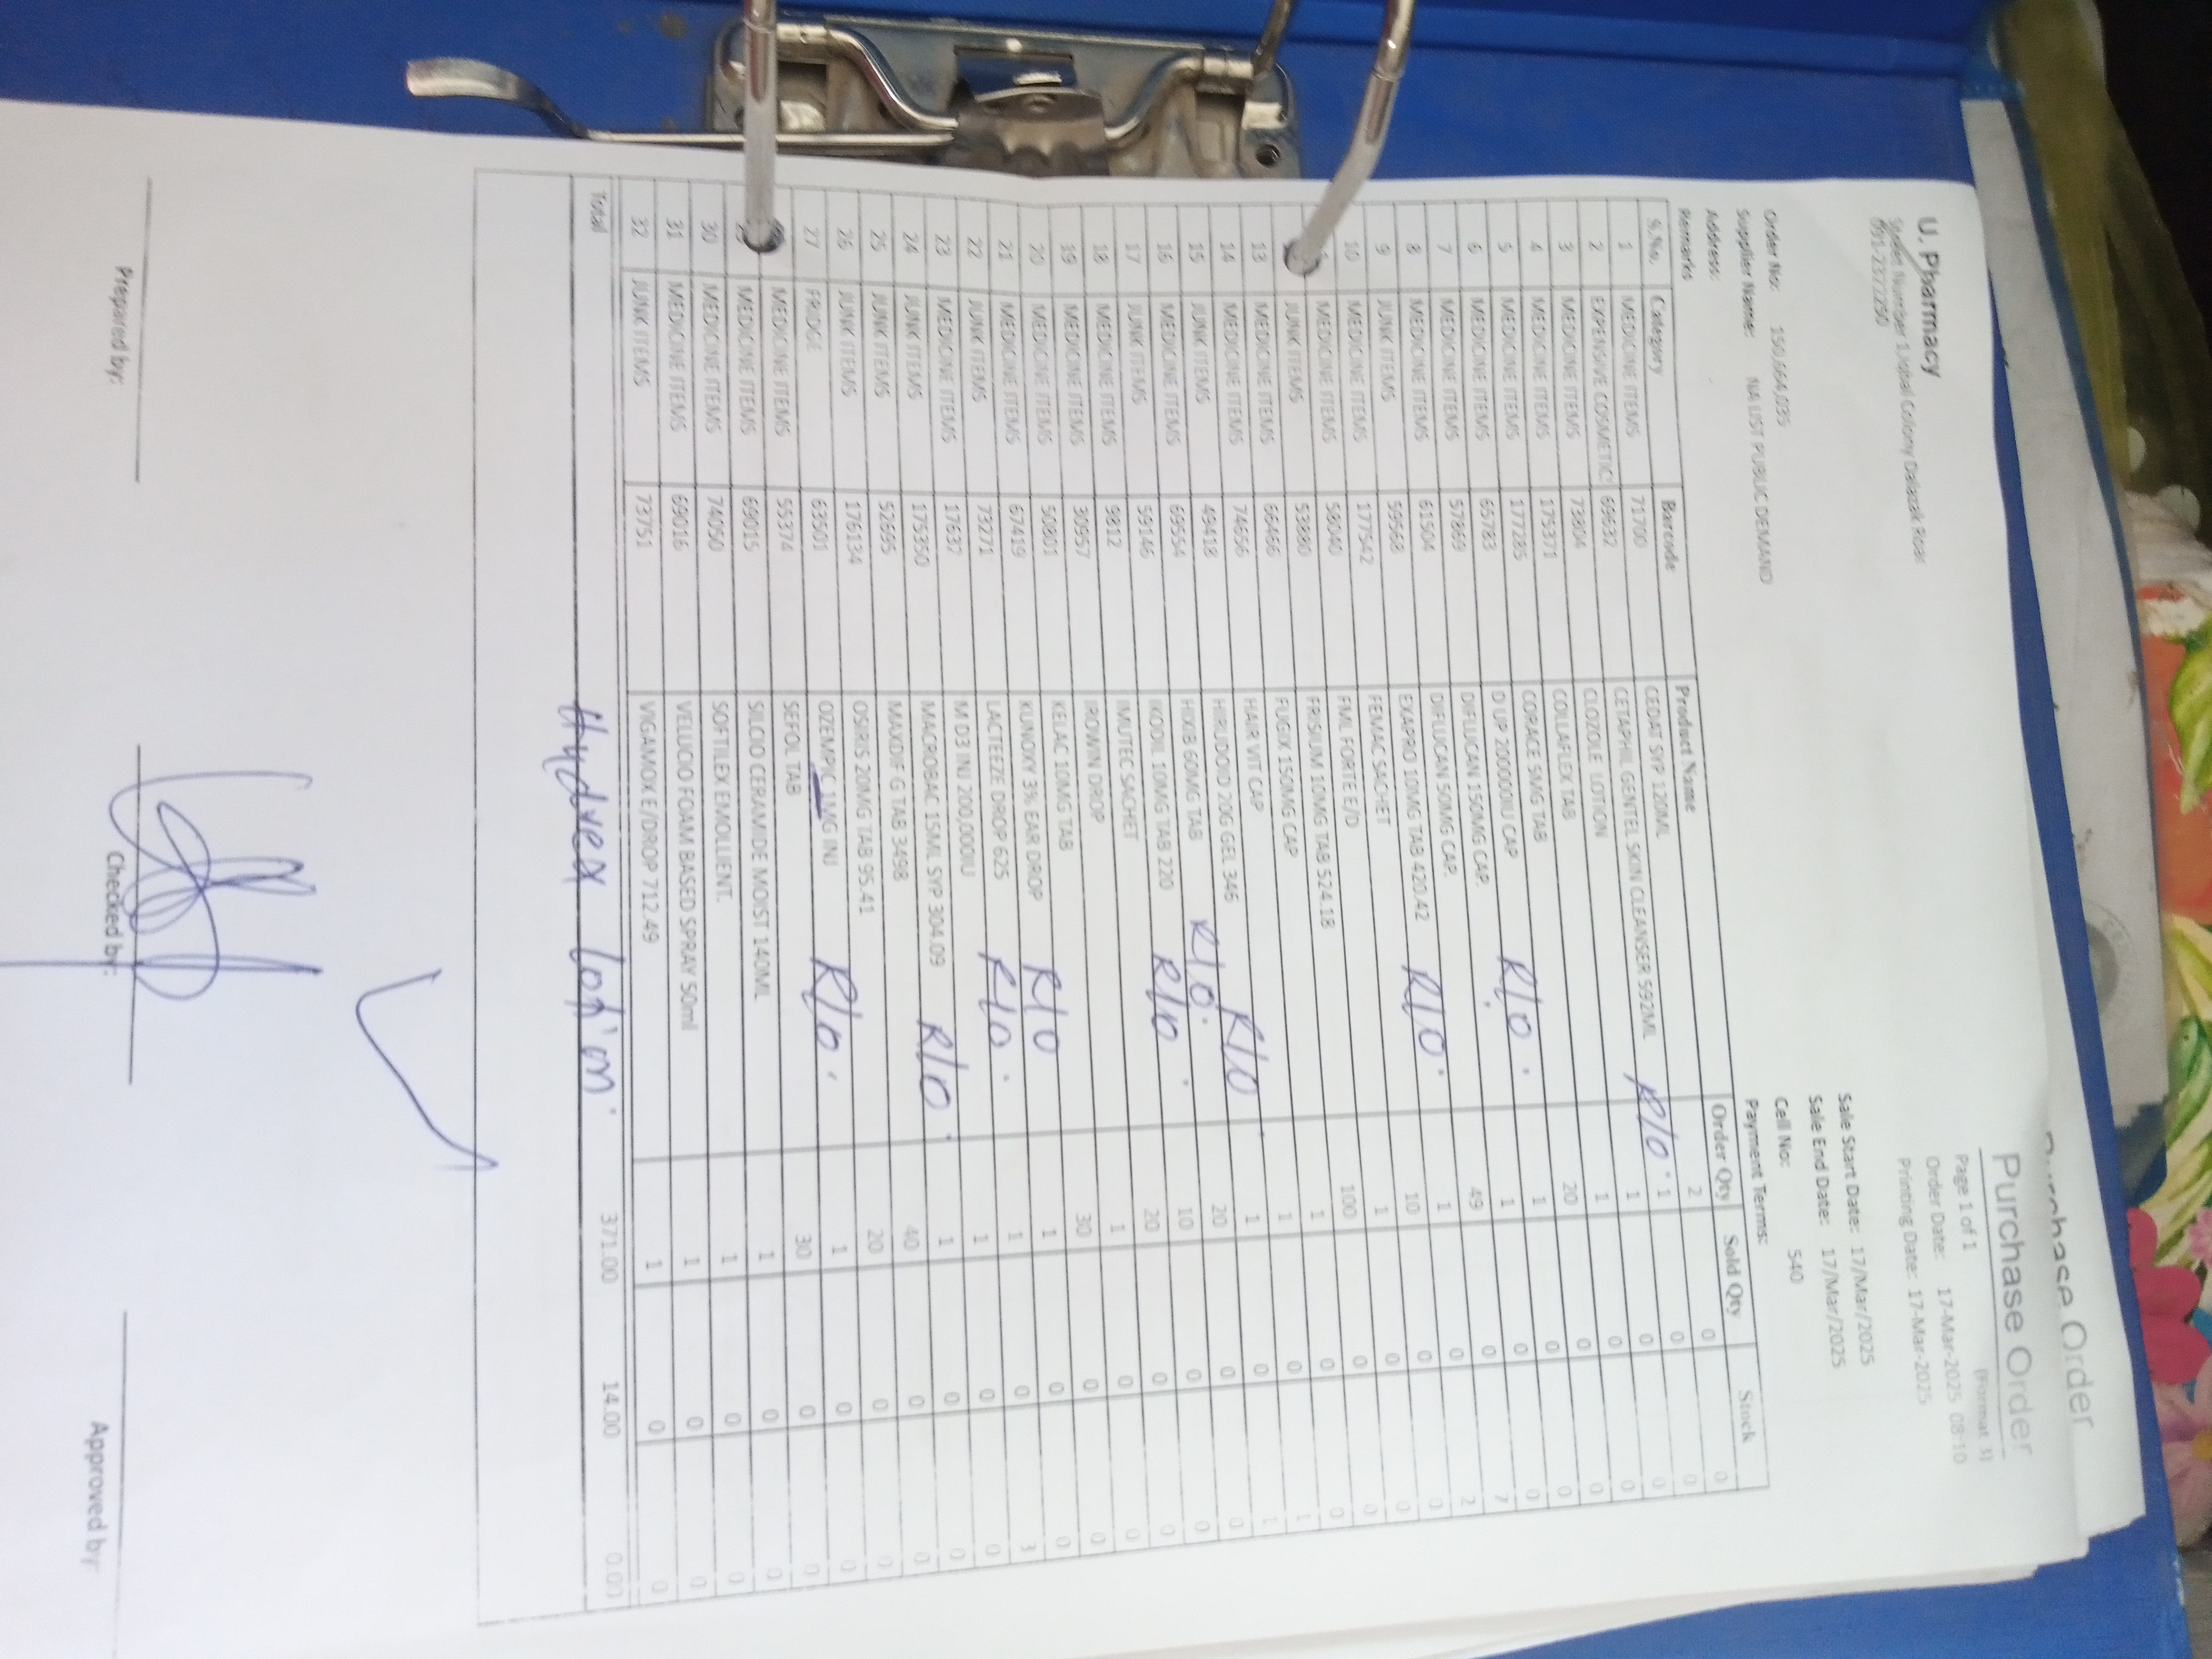 Purchase Order
Purchase Order
(Format 3)
U. Pharmacy
Page 1 of 1
Order Date: 17-Mar-2025 08:10
Printing Date: 17-Mar-2025
Order No: 150,664,035
Sale Start Date: 17/Mar/2025
Supplier Name: NA LIST PUBLIC DEMAND
Sale End Date: 17/Mar/2025
Address:
Cell No: 540
Remarks
Payment Terms:
S.No. Category Barcode Product Name Order Qty Sold Qty Stock
1 MEDICINE ITEMS 71700 CEDAT SYP 120ML 2 0 0
2 EXPENSIVE COSMETICS 69632 CETAPHIL GENTEL SKIN CLEANSER 592ML R/O 1 0 0
3 MEDICINE ITEMS 73804 CLOZOLE LOTION 1 0 0
4 MEDICINE ITEMS 175371 COLLAFLEX TAB 1 0 0
5 MEDICINE ITEMS 177285 CORACE 5MG TAB 20 0 0
6 MEDICINE ITEMS 65783 D UP 200000IU CAP R/O 1 0 0
7 MEDICINE ITEMS 57869 DIFLUCAN 150MG CAP. 1 0 0
8 MEDICINE ITEMS 61504 DIFLUCAN 50MG CAP. 49 0 7
9 JUNK ITEMS 59568 EXAPRO 10MG TAB 420.42 R/O 1 0 2
10 MEDICINE ITEMS 177542 FEMAC SACHET 10 0 0
MEDICINE ITEMS 58040 FML FORTE E/D 1 0 0
JUNK ITEMS 53880 FRISIUM 10MG TAB 524.18 100 0 0
13 MEDICINE ITEMS 66466 FUGIX 150MG CAP 1 0 0
14 MEDICINE ITEMS 74656 HAIR VIT CAP 1 0 1
15 JUNK ITEMS 49418 HIRUDOID 20G GEL 346 R/O 1 0 1
16 MEDICINE ITEMS 69554 HIXIB 60MG TAB R/O 20 0 0
17 JUNK ITEMS 59146 IKODIL 10MG TAB 220 R/O 10 0 0
18 MEDICINE ITEMS 9812 IMUTEC SACHET 20 0 0
19 MEDICINE ITEMS 30957 IROWIN DROP 1 0 0
20 MEDICINE ITEMS 50801 KELAC 10MG TAB 30 0 0
21 MEDICINE ITEMS 67419 KUNOXY 3% EAR DROP R/O 1 0 0
22 JUNK ITEMS 73271 LACTEEZE DROP 625 R/O 1 0 3
23 MEDICINE ITEMS 17637 M D3 INJ 200,000IU 1 0 0
24 JUNK ITEMS 175350 MACROBAC 15ML SYP 304.09 R/O 1 0 0
25 JUNK ITEMS 52695 MAXDIF G TAB 3498 40 0 0
26 JUNK ITEMS 176134 OSIRIS 20MG TAB 95.41 20 0 0
27 FRIDGE 63501 OZEMPIC 1MG INJ R/O 1 0 0
MEDICINE ITEMS 55374 SEFOL TAB 30 0 0
MEDICINE ITEMS 69015 SILCIO CERAMIDE MOIST 140ML 1 0 0
30 MEDICINE ITEMS 74050 SOFTILEX EMOLLIENT. 1 0 0
31 MEDICINE ITEMS 69016 VELUCIO FOAM BASED SPRAY 50ml 1 0 0
32 JUNK ITEMS 73751 VIGAMOX E/DROP 712.49 1 0 0
Total 371.00 14.00 0.00
Prepared by: Checked by: Approved by: